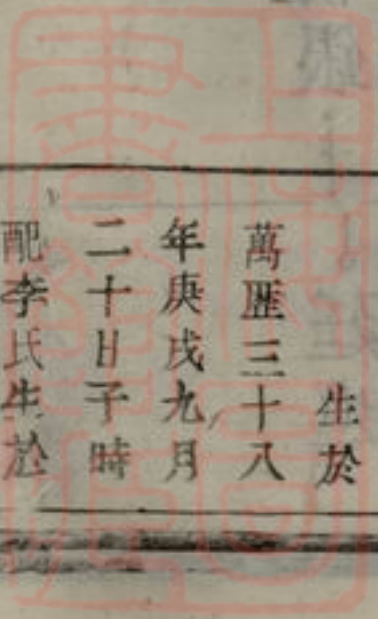 生於
萬曆三十八
年庚戌九月
二十日子時
配李氏生於